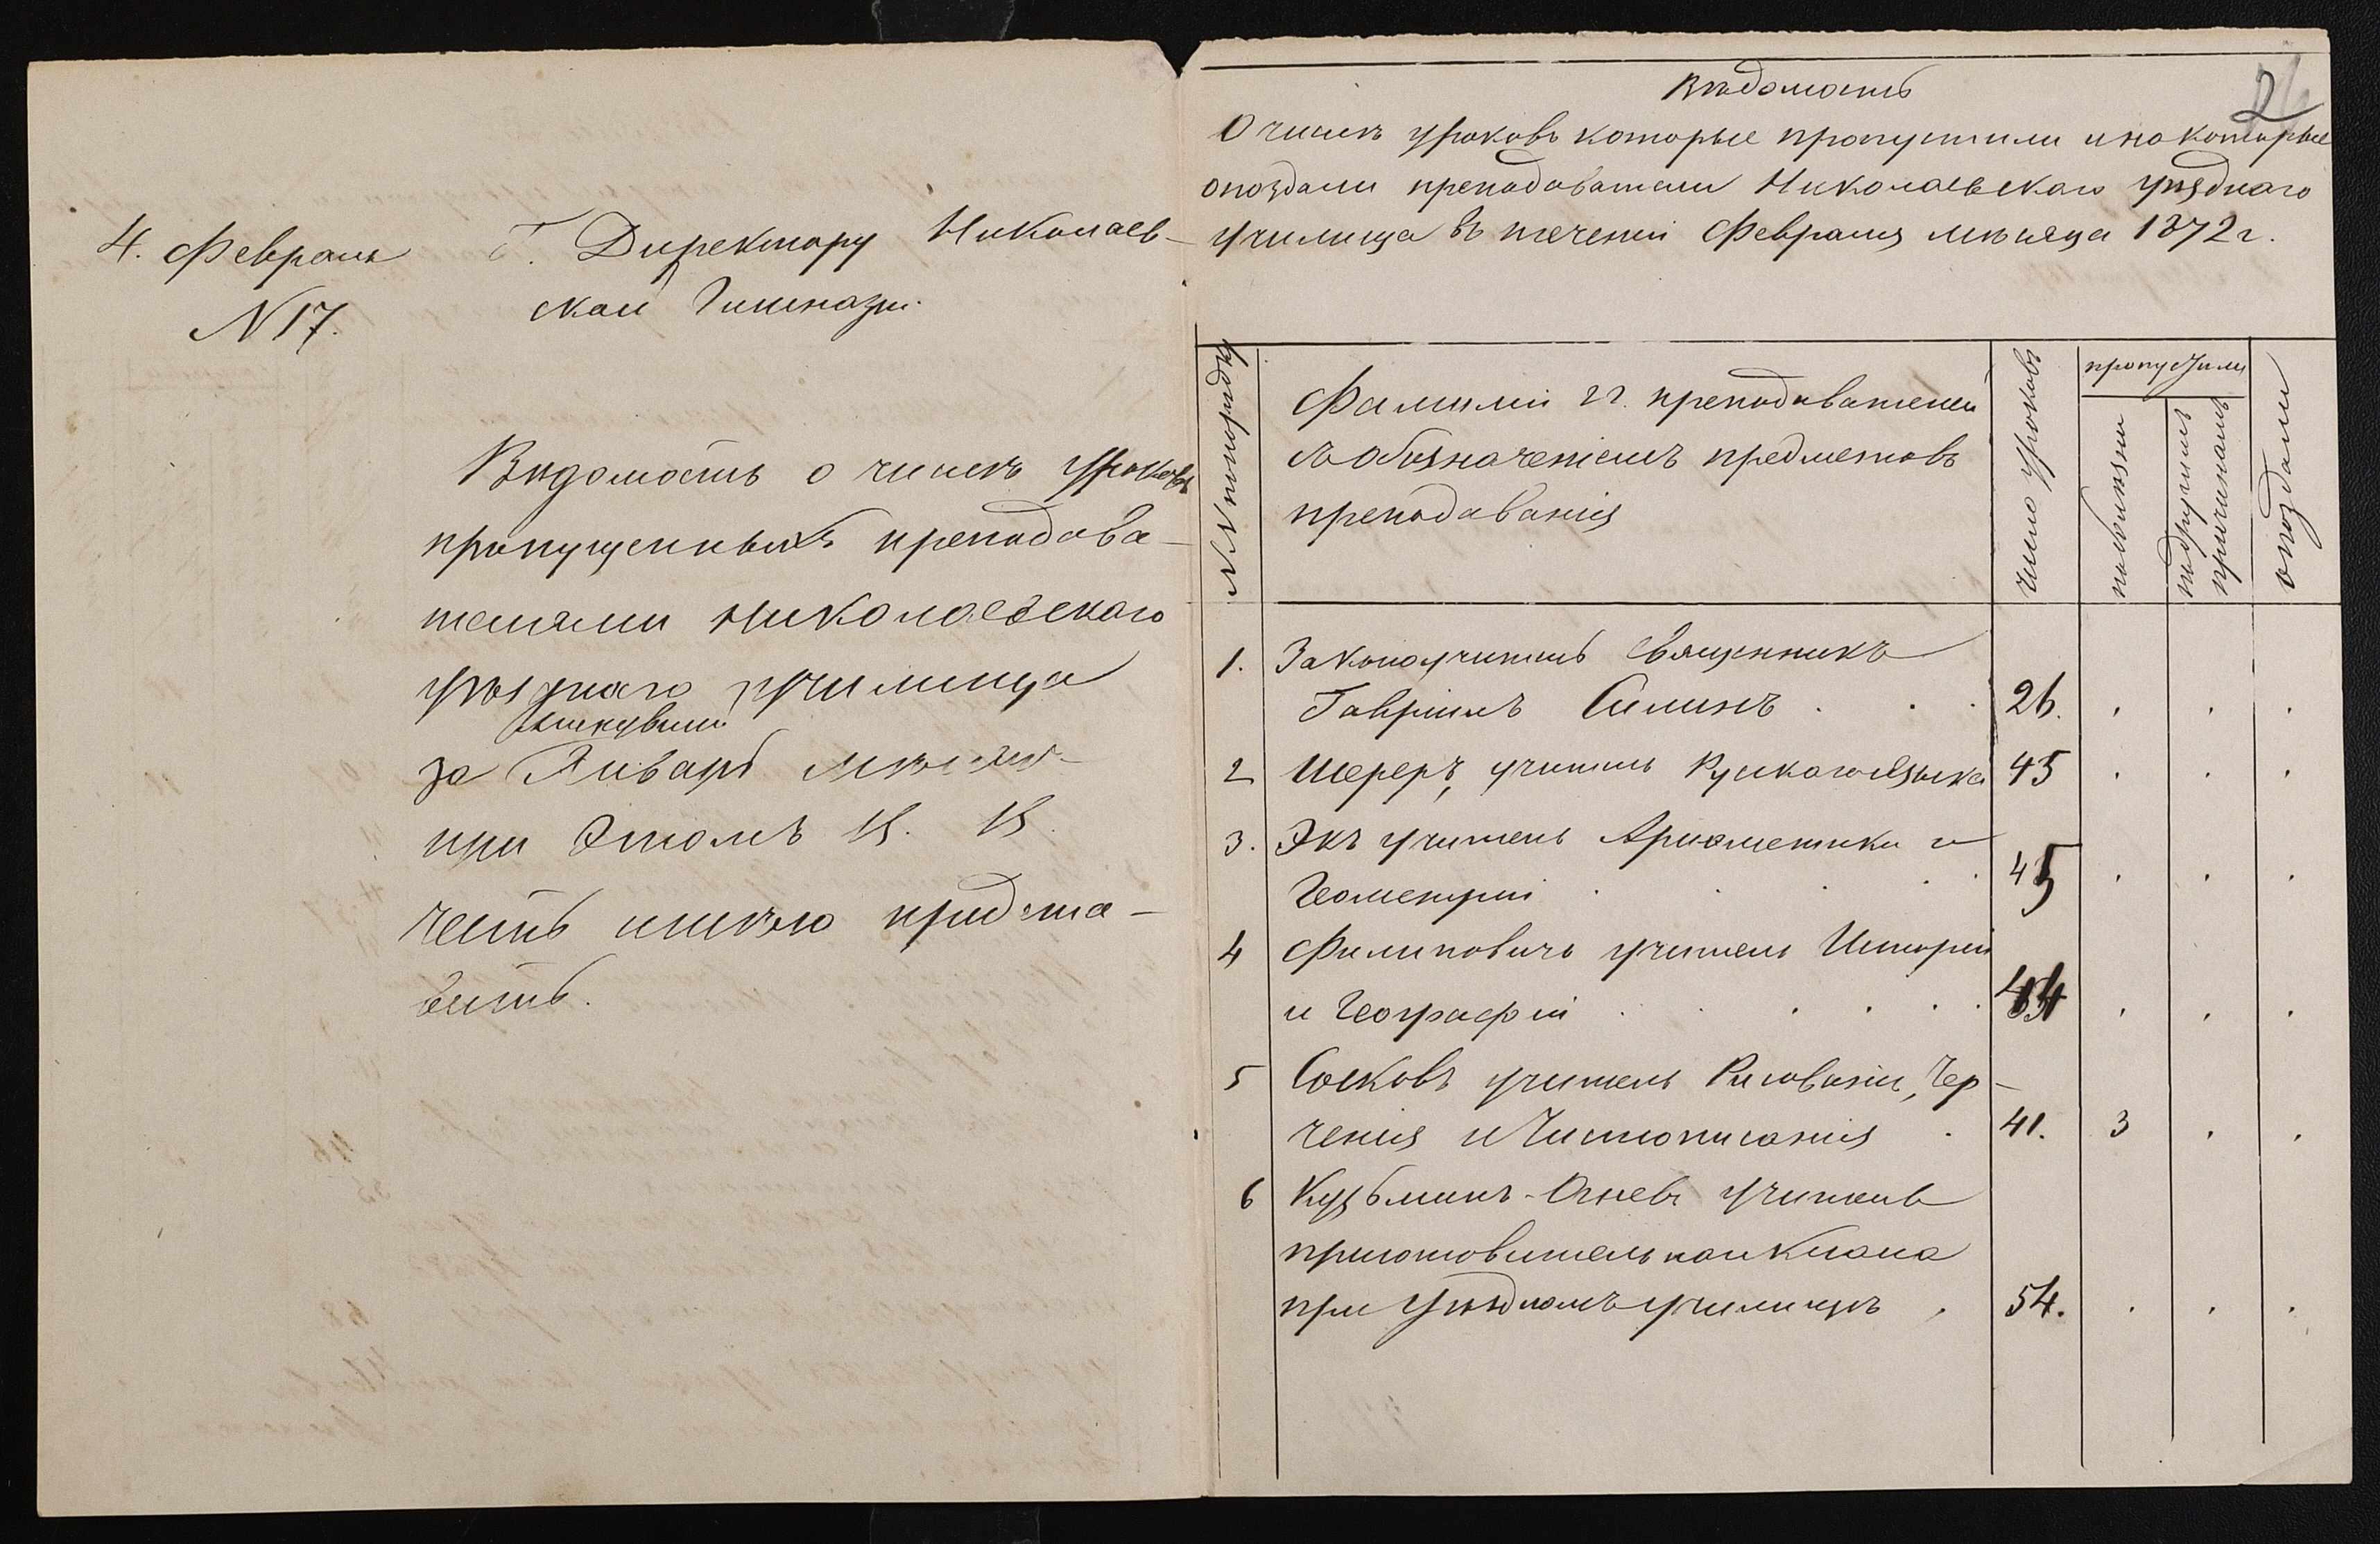 4. Февраля
N 17.
Г. Директору Николаев-
ской Гимназіи.
Вѣдомость о числѣ уроковъ
пропущенныхъ преподава-
телями Николаевскаго
уѣзднаго училища
за Январь мѣсяцъ
при этомъ В. В.
честь имѣю предста-
вить.
2
Вѣдомость
О числѣ уроковъ которые пропустили и на которые
опоздали преподаватели Николаевскаго уѣзднаго
училища въ теченіи Февраля мѣсяца 1872 г.
NN по порядку
Фамиліи гг. преподавателей
съ обозначеніемъ предметовъ
преподаванія
число уроковъ
пропустили
по болѣзни
по другимъ
причинамъ
опоздали
1. Законоучитель Священникъ
Гавріилъ Силинъ . . . 26. . . .
2 Шереръ, учитель Рускаго языка 45 . . .
3. Экъ учитель Ариѳметики и
Геометріи . . . . . 45 . . .
4 Филиповичъ учитель Исторіи
и Географіи . . . . . . .
5 Сосковъ учитель Рисованія, Чер-
ченія и Чистописанія . 41. 3 . .
6 Кузьминъ-Огневъ учитель
приготовительнаго класа
при Уѣздномъ училищѣ . 54. . . .